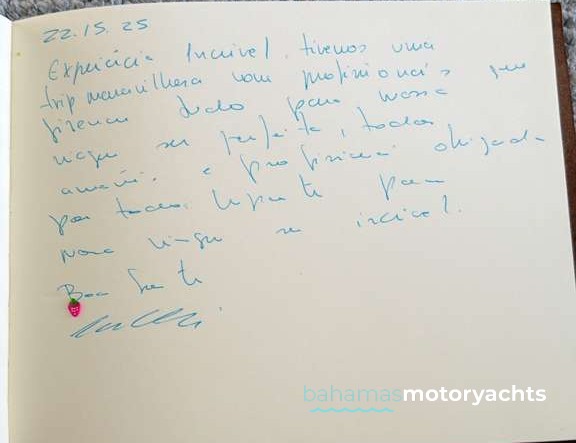 22.15.25
Experiência Incrível. tivemos uma
trip maravilhosa com profissionais que
fizeram tudo para nossa
viagem ser perfeita, todos
e obrigada
por todo para
nossa viagem ser incrível.
Boa Sorte
bahamasmotoryachts